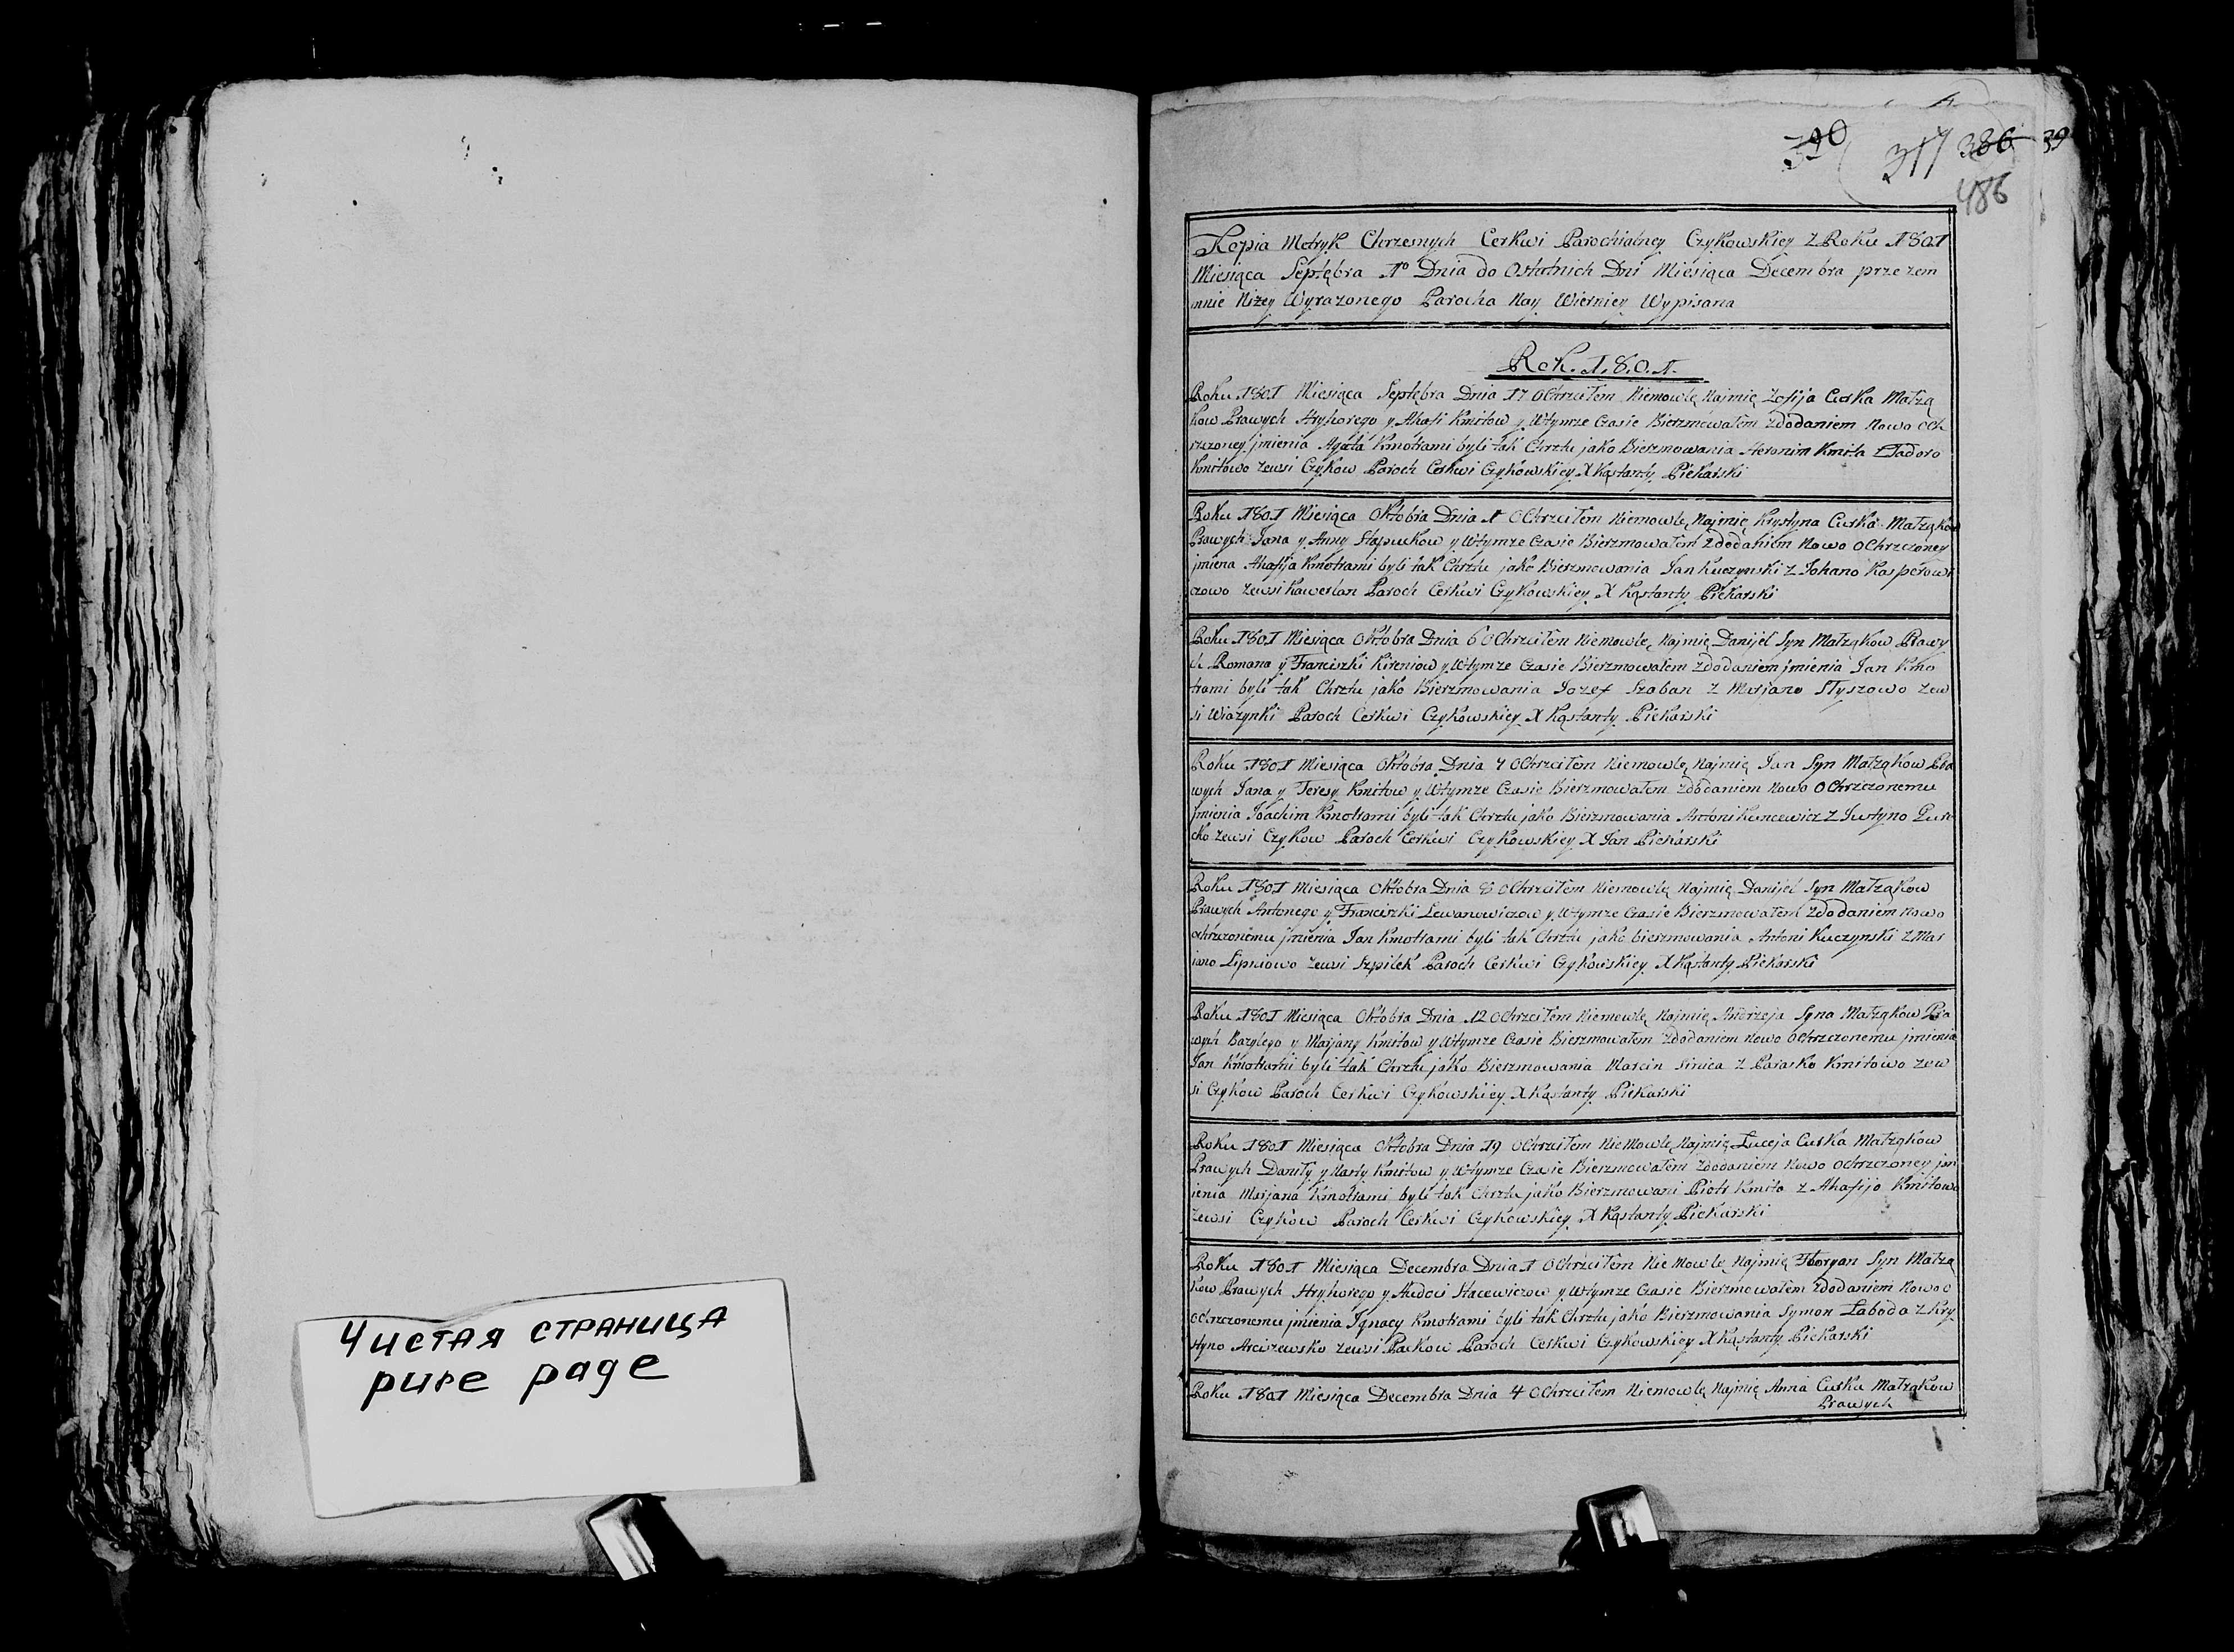 Чистая страница
pure page
390 317 386 39
486
Kopia Metryk Chrzesnych Cerkwi Parochialney Czykowskiey z Roku 1801
Miesiąca Septębra 1º Dnia do Ostatnich Dni Miesiąca Decembra prze zem
mnie Niżey Wyrażonego Parocha Nay Wierniey Wypisana
Rok. 1.8.0.1.
Roku 1801 Miesiąca Septębra Dnia 17 Ochrzciłem Niemowlę Najmię Zofija Curka Małżą
kow Prawych Hryhorego y Ahafi Kmitow y Wtymze Czasie Bierzmowałem Zdodaniem Nowo Och
rzczoney jmienia Agata Kmotrami byli tak Chrztu jako Bierzmowania Heronim Kmita z Fadoro
Kmitowo Zewsi Czykow Paroch Cerkwi Czykowskiey X Kąstanty Piekarski
Roku 1801 Miesiąca Oktobra Dnia 1 Ochrzciłem Niemowlę Najmię Krystyna Curka Małżąkow
Prawych Jana y Anny Słapukow y Wtymze Czasie Bierzmowałem Zdodaniem Nowo Ochrzczoney
jmiena Ahafija Kmotrami byli tak Chrztu jako Bierzmowania Jan Kuczynski z Johano Kasperowi
czowo Zewsi Kawerlan Paroch Cerkwi Czykowskiey X Kąstanty Piekarski
Roku 1801 Miesiąca Oktobra Dnia 6 Ochrzciłem Niemowlę Najmię Danijel Syn Małżąkow Prawy
ch Romana y Franciszki Kireniow y Wtymze Czasie Bierzmowałem Zdodaniem jmienia Jan Kmo
trami byli tak Chrztu jako Bierzmowania Jozef Szaban z Marjano Słyszowo Zew
si Wiazynki Paroch Cerkwi Czykowskiey X Kąstanty Piekarski
Roku 1801 Miesiąca Oktobra Dnia 7 Ochrzciłem Niemowlę Najmię Jan Syn Małżąkow Pra
wych Jana y Teresy Kmitow y Wtymze Czasie Bierzmowałem Zdodaniem Nowo Ochrzczonemu
jmienia Joachim Kmotrami byli tak Chrztu jako Bierzmowania Antoni Kuncewicz z Justyno
cko Zewsi Czykow Paroch Cerkwi Czykowskiey X Jan Piekarski
Roku 1801 Miesiąca Oktobra Dnia 8 Ochrzciłem Niemowlę Najmię Danijel Syn Małżąkow
Prawych Antonego y Franciszki Lewanowiczow y Wtymze Czasie Bierzmowałem Zdodaniem Nowo
ochrzczonemu jmienia Jan Kmotrami byli tak Chrztu jako bierzmowania Antoni Kuczynski z Mar
jano Lipniowo Zewsi Szpilek Paroch Cerkwi Czykowskiey X Kąstanty Piekarski
Roku 1801 Miesiąca Oktobra Dnia 12 Ochrzciłem Niemowlę Najmię Andrzeja Syna Małżąkow Pra
wych Bazylego y Marjany Kmitow y Wtymze Czasie Bierzmowałem Zdodaniem Nowo Ochrzczonemu jmienia
Jan Kmotrami byli tak Chrztu jako Bierzmowania Marcin Sinica z Parasko Kmitowo Zew
si Czykow Paroch Cerkwi Czykowskiey X Kąstanty Piekarski
Roku 1801 Miesiąca Oktobra Dnia 19 Ochrzciłem Niemowlę Najmię Luceja Curka Małżąkow
Prawych Daniły y Marty Kmitow y Wtymze Czasie Bierzmowałem Zdodaniem Nowo Ochrzczoney jm
ienia Marjana Kmotrami byli tak Chrztu jako Bierzmowani Piotr Kmita z Ahafijo Kmitowo
Zewsi Czykow Paroch Cerkwi Czykowskiey X Kąstanty Piekarski
Roku 1801 Miesiąca Decembra Dnia 1 Ochrzciłem Niemowlę Najmię Floryan Syn Małżą
kow Prawych Hryhorego y Audoci Stacewiczow y Wtymze Czasie Bierzmowałem Zdodaniem Nowo o
ochrzczonemu jmienia Jgnacy Kmotrami byli tak Chrztu jako Bierzmowania Symon Łaboda z Kry
styno Arciszewsko Zewsi Packow Paroch Cerkwi Czykowskiey X Kąstanty Piekarski
Roku 1801 Miesiąca Decembra Dnia 4 Ochrzciłem Niemowlę Najmię Anna Curka Małżąkow
Prawych